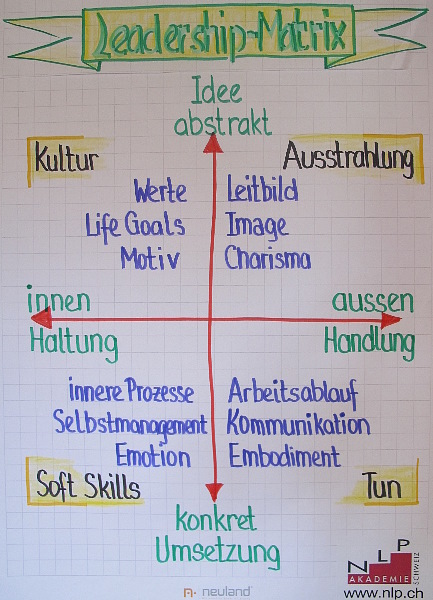 Leadership-Matrix
Idee
abstrakt
Kultur
Ausstrahlung
Werte
Life Goals
Motiv
Leitbild
Image
Charisma
innen
Haltung
aussen
Handlung
innere Prozesse
Selbstmanagement
Emotion
Arbeitsablauf
Kommunikation
Embodiment
Soft Skills
Tun
konkret
Umsetzung
neuland
NLP
AKADEMIE
SCHWEIZ
www.nlp.ch